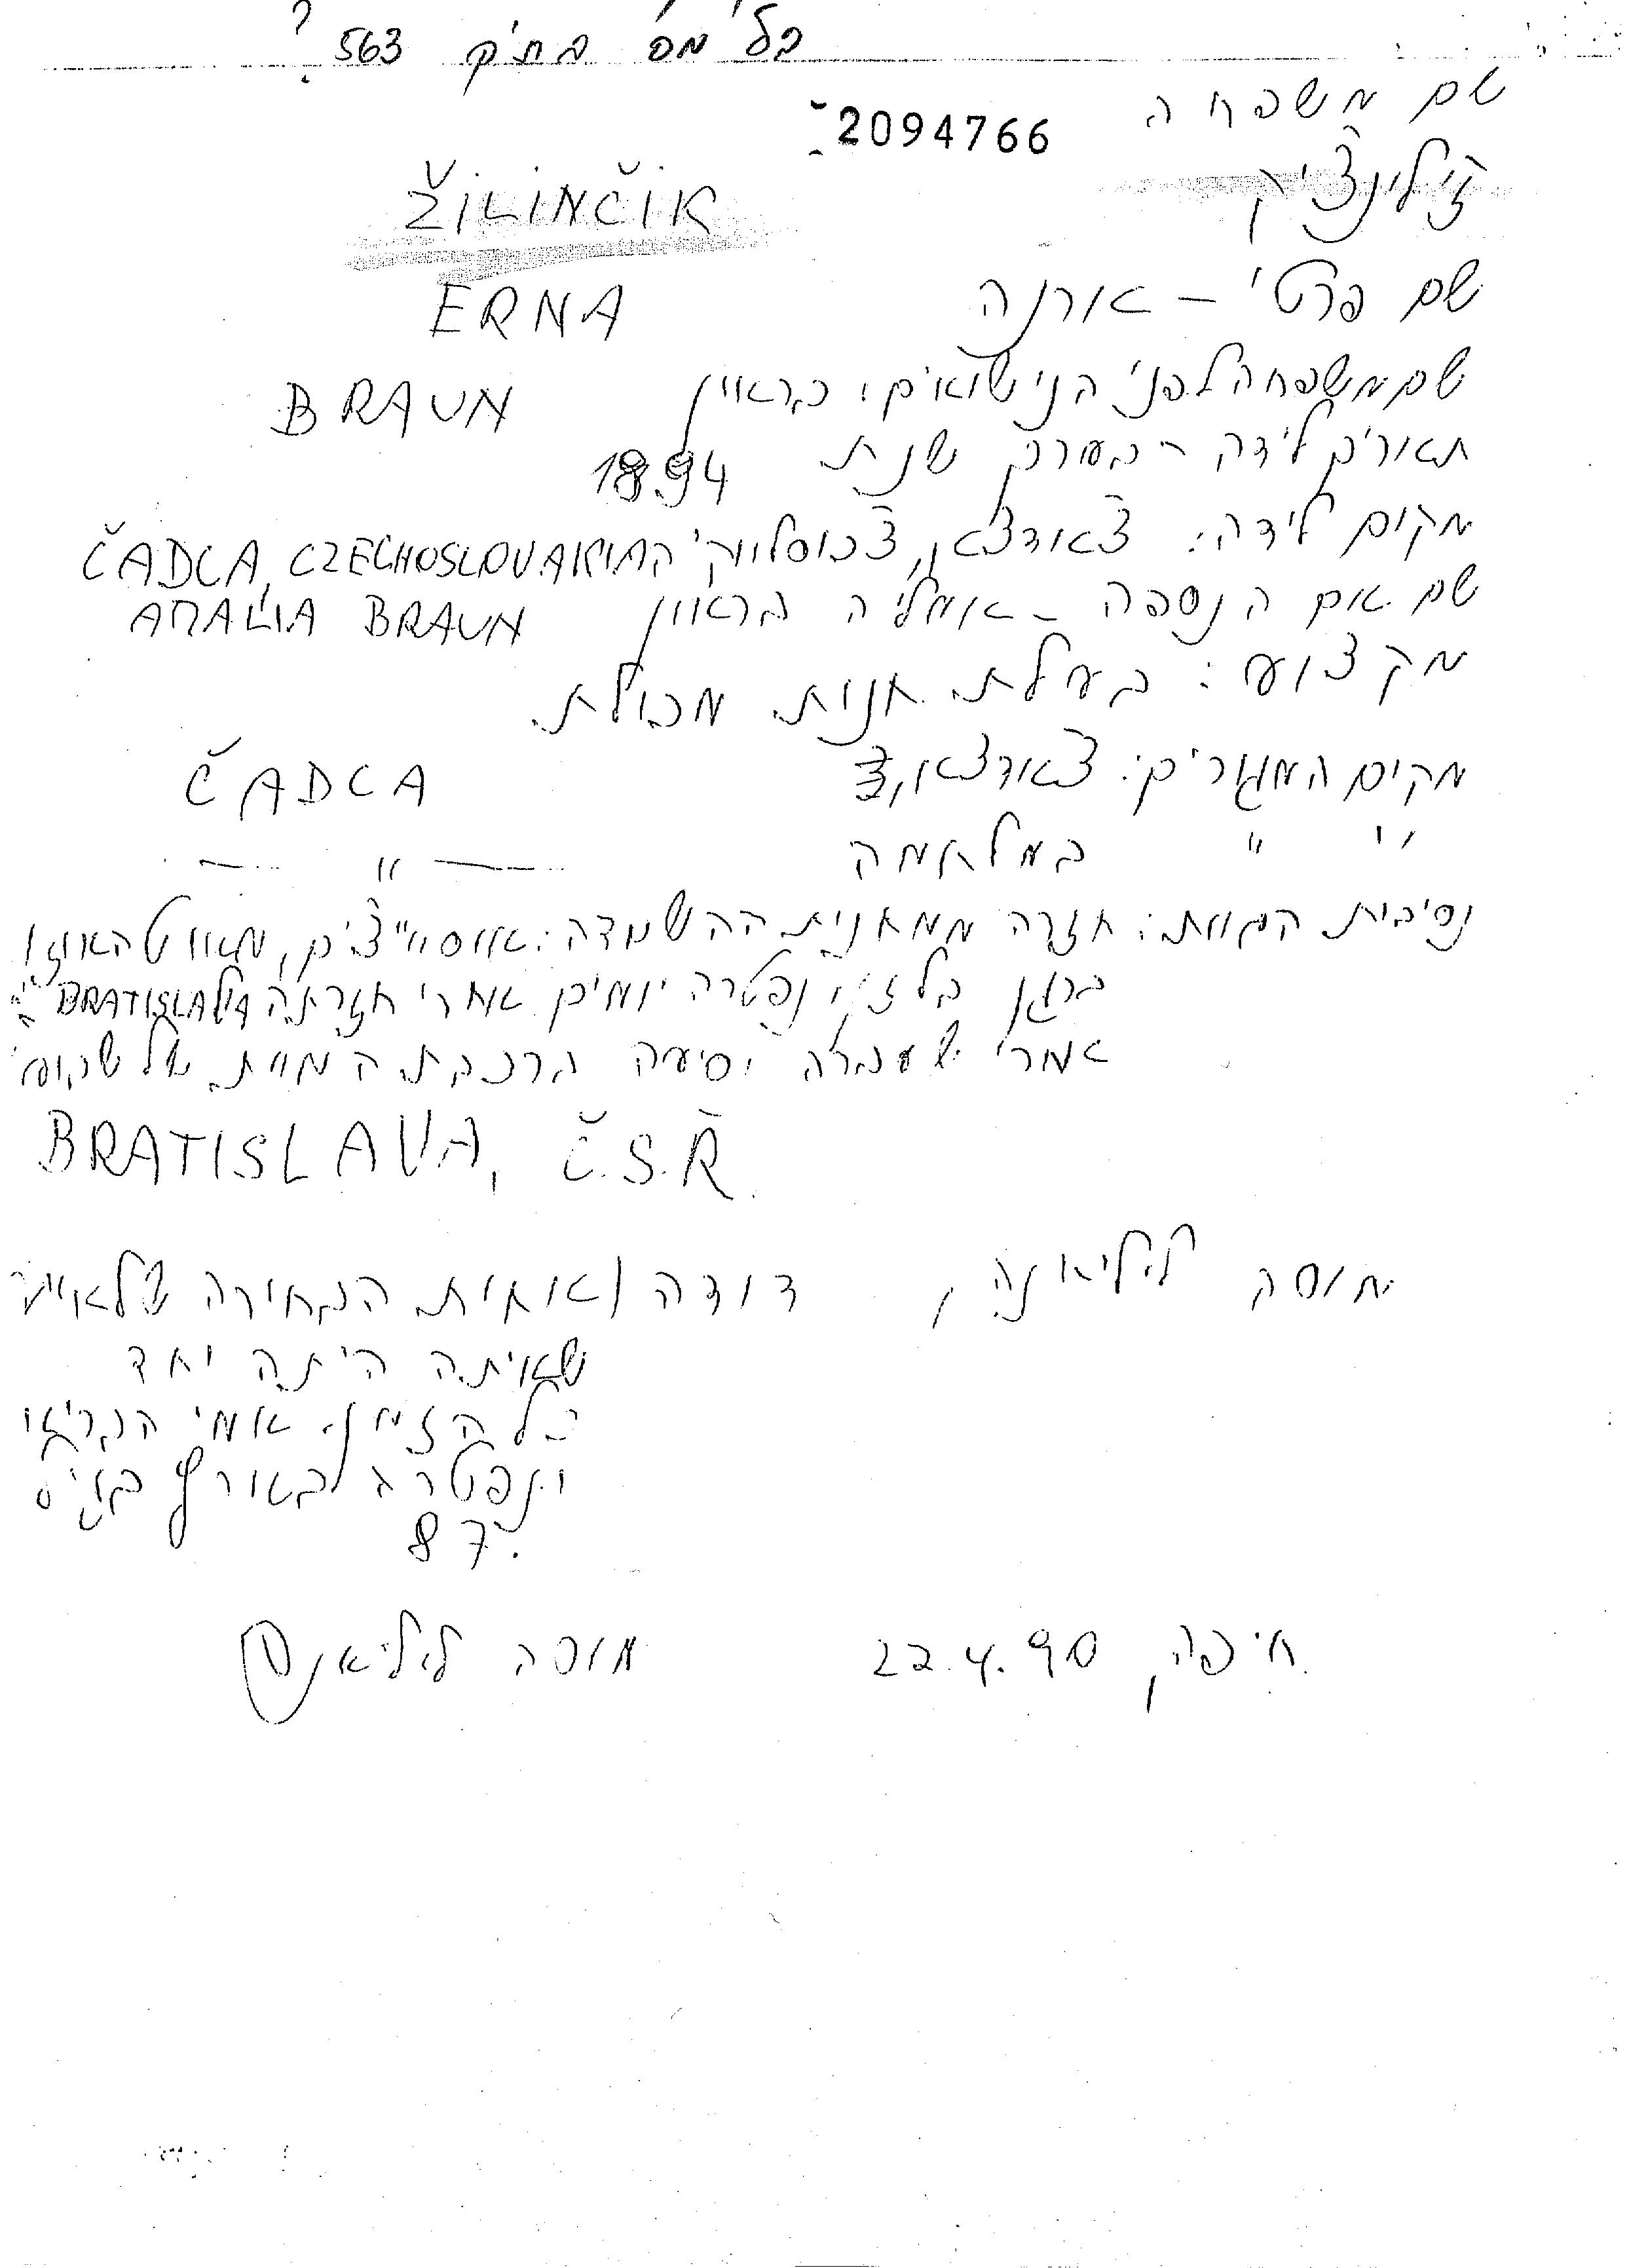 בלי מס' בתיק 563 ?
שם משפחה
2094766
ז'ילינצ'יק ŽILINČIK
שם פרטי – ארנה ERNA
שם משפחה לפני הנישואים: בראון BRAUN
תאריך לידה - בערך שנת 1894
מקום לידה: צ'אדצא, צ'כוסלווקיה ČADCA, CZECHOSLOVAKIA
שם אם הנספה - אמליה בראון AMALIA BRAUN
מקצוע: בעלת חנות מכולת
מקום המגורים: צ'אדצא, ČADCA
" " במלחמה — " —
נסיבות המוות: חזרה ממחנות ההשמדה: אוסווייצ'ים, מאווטהאוזן
ברגן בלזן נפטרה יומים אחרי חזרתה BRATISLAVA
אחרי שעברה נסיעה ברכבת המוות של
BRATISLAVA, Č.S.R.
מוסה ליליאנה, דודה ואחות הבחירה של
שאיתה היתה יחד
כל הזמן. אמי הבריאה
ונפטרה בארץ בגיל
87.
חיפה, 22.4.90 מוסה ליליאנה